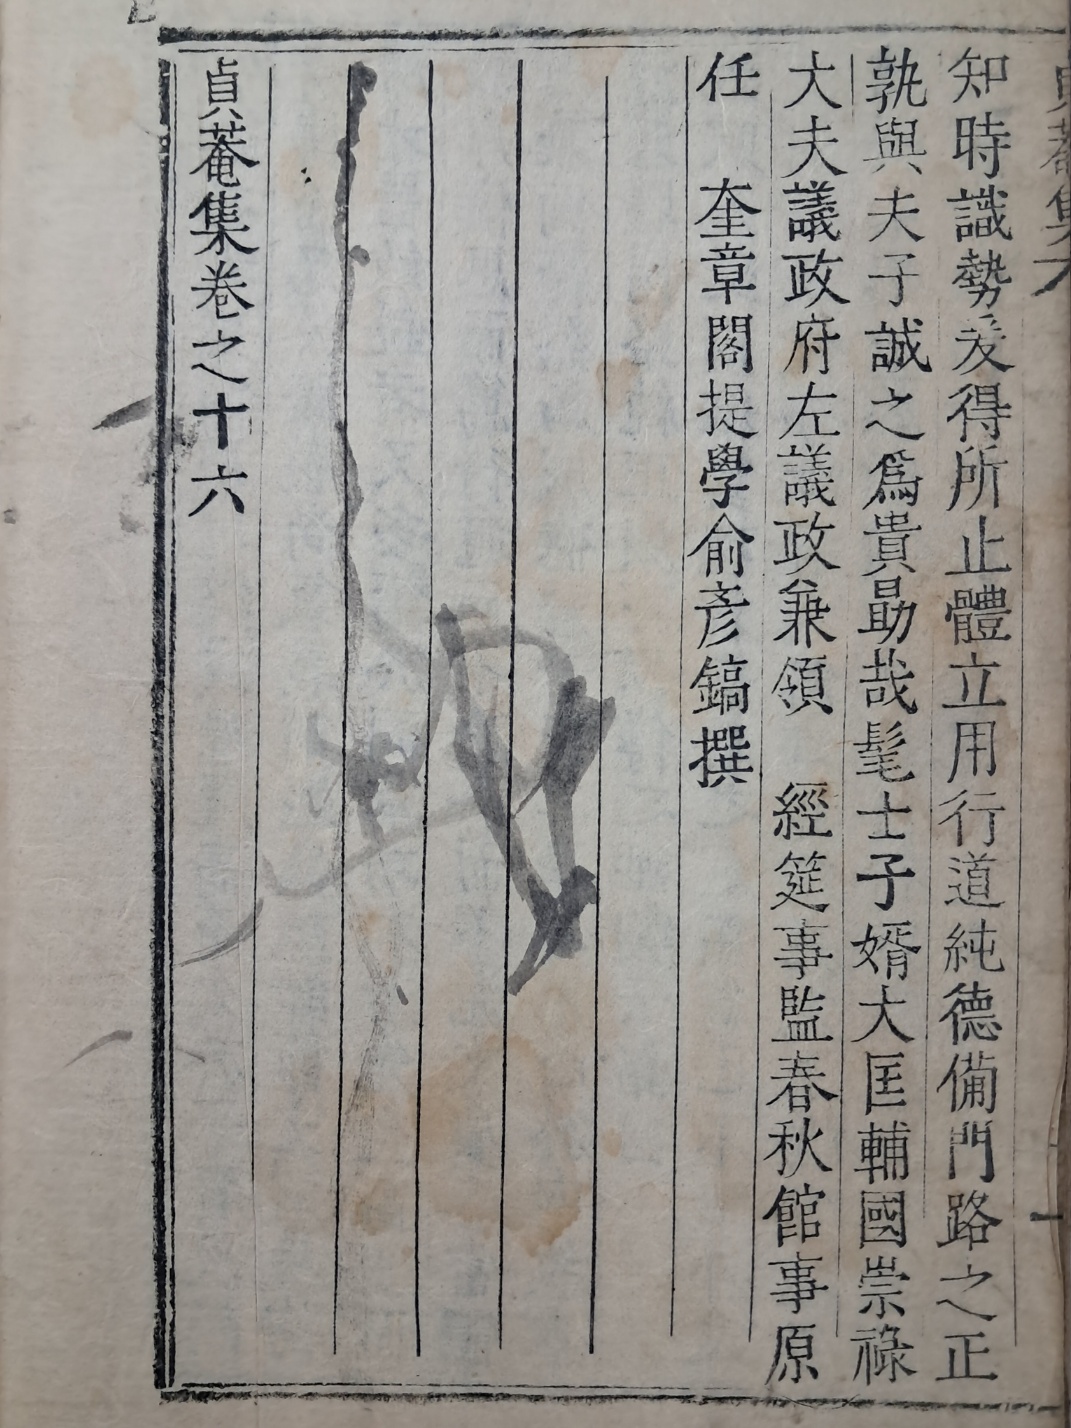 貞菴集
知時識勢爰得所止體立用行道純德備門路之正
孰與夫子誠之爲貴勖哉髦士子婿大匡輔國崇祿
大夫議政府左議政兼領　經筵事監春秋館事原
任　奎章閣提學俞彥鎬撰
貞菴集卷之十六